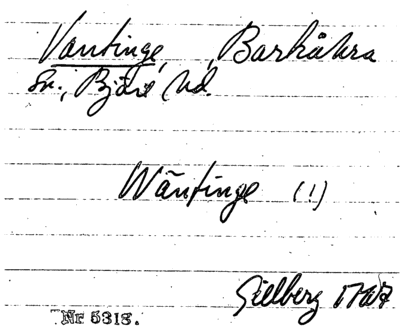 Vantinge, Barkåkra
Sn., Bjäre hd.
Wäntinge (!)
Gillberg 1767
Nr 5318.